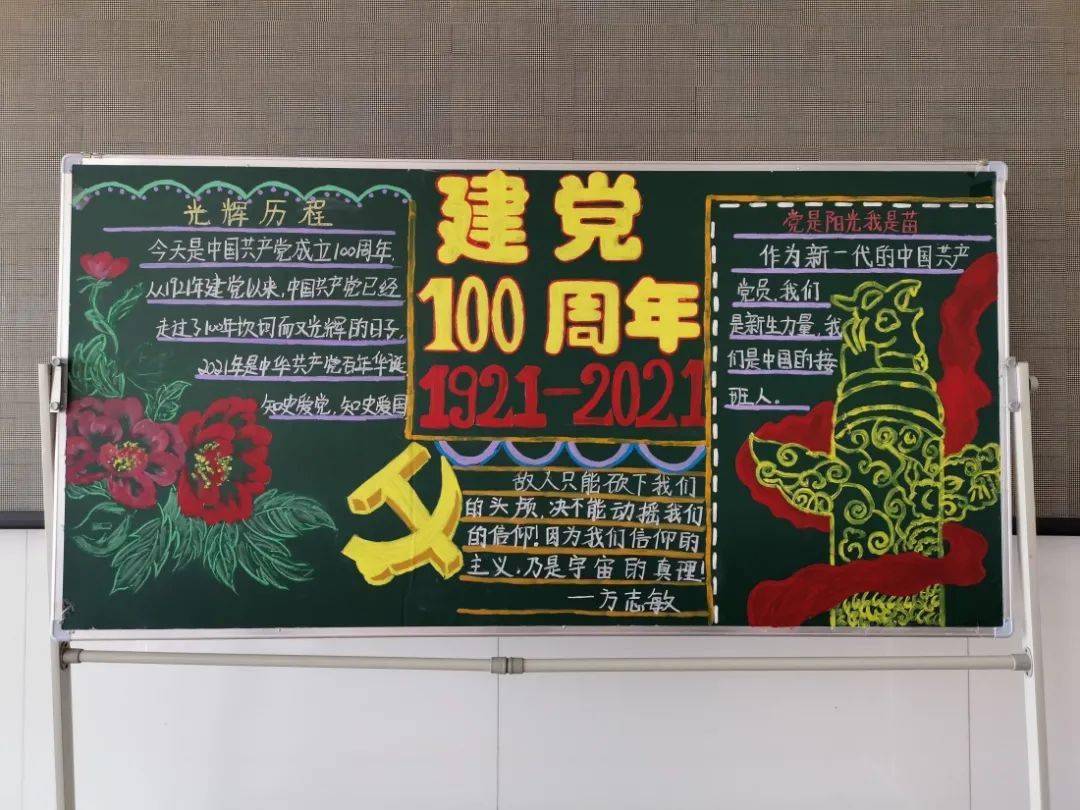 光辉历程
今天是中国共产党成立100周年,
从1921年建党以来,中国共产党已经
走过了100年坎坷而又光辉的日子,
2021年是中华共产党百年华诞
知史爱党,知史爱国
建党
100周年
1921-2021
敌人只能砍下我们
的头颅,决不能动摇我们
的信仰!因为我们信仰的
主义,乃是宇宙的真理!
—方志敏
党是阳光我是苗
作为新一代的中国共产
党员,我们
是新生力量,我
们是中国的接
班人.